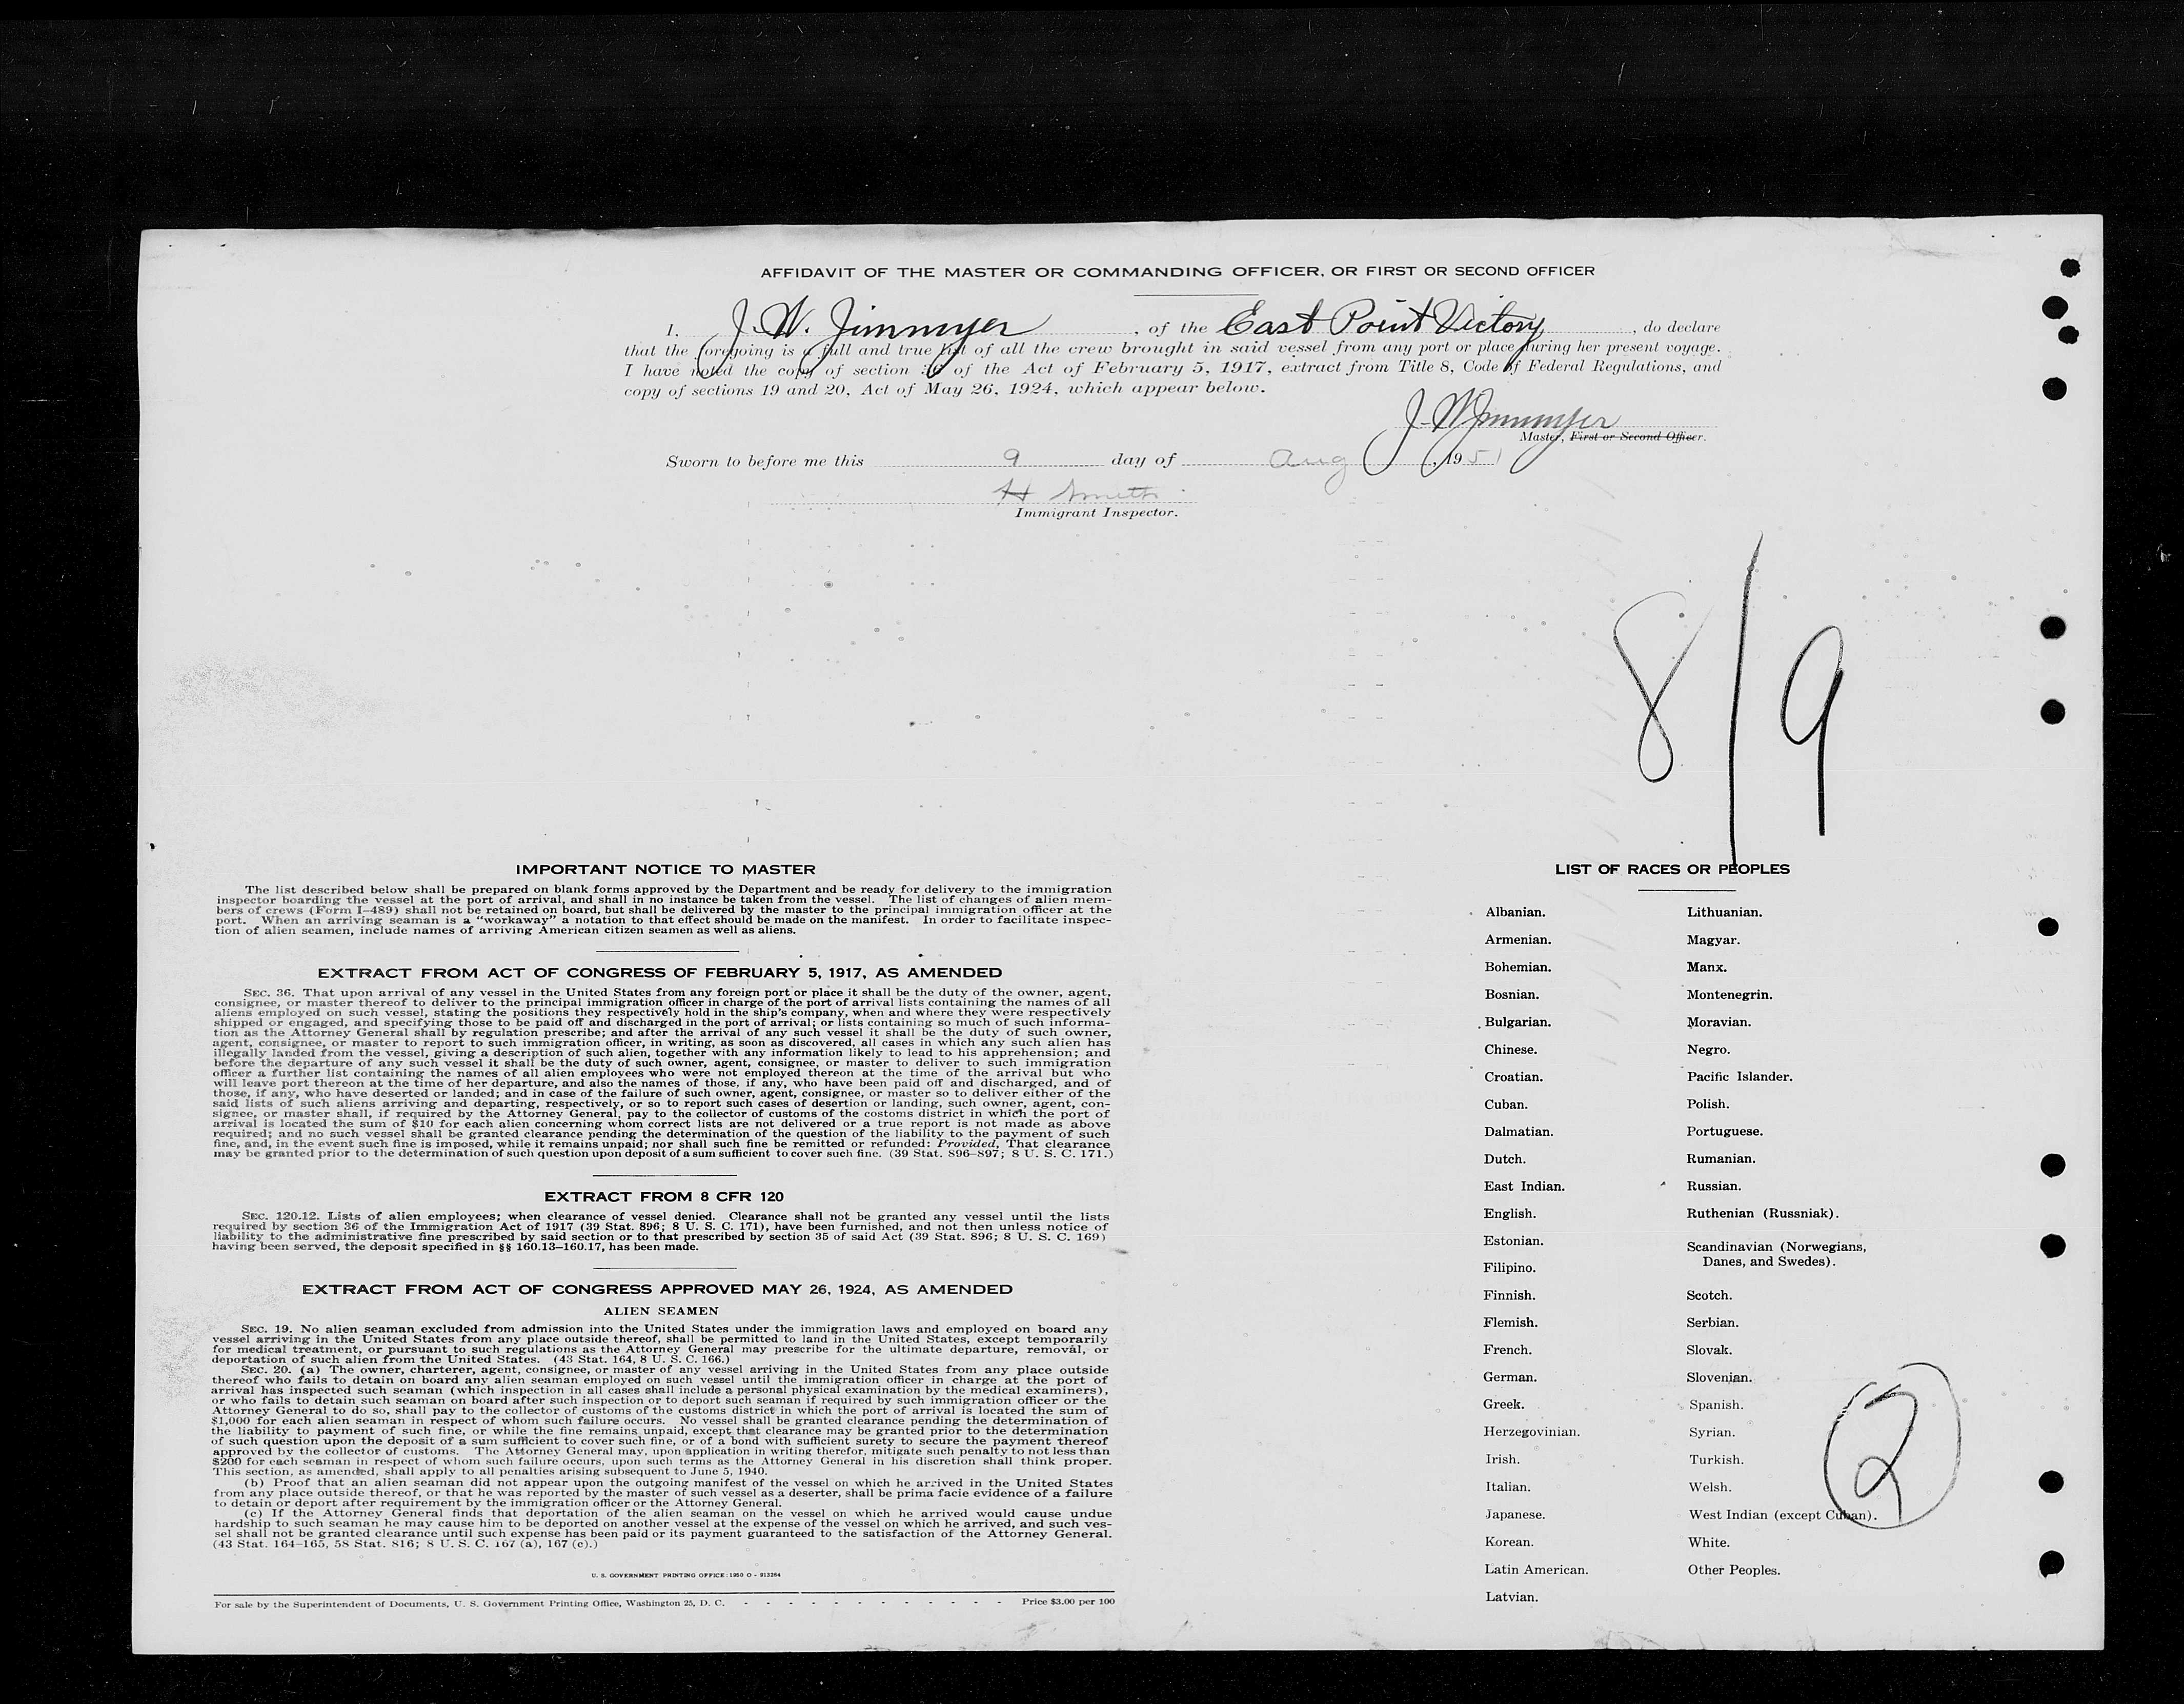 AFFIDAVIT OF THE MASTER OR COMMANDING OFFICER, OR FIRST OR SECOND OFFICER
I, J. W. Jimmyer, of the East Point Victory, do declare
that the foregoing is a full and true list of all the crew brought in said vessel from any port or place during her present voyage.
I have noted the copy of section 36 of the Act of February 5, 1917, extract from Title 8, Code of Federal Regulations, and
copy of sections 19 and 20, Act of May 26, 1924, which appear below.
J. W. Jimmyer
Master, First or Second Officer.
Sworn to before me this 9 day of Aug, 1951
H Smith
Immigrant Inspector.
8/9
IMPORTANT NOTICE TO MASTER
The list described below shall be prepared on blank forms approved by the Department and be ready for delivery to the immigration
inspector boarding the vessel at the port of arrival, and shall in no instance be taken from the vessel. The list of changes of alien mem-
bers of crews (Form I-489) shall not be retained on board, but shall be delivered by the master to the principal immigration officer at the
port. When an arriving seaman is a "workaway" a notation to that effect should be made on the manifest. In order to facilitate inspec-
tion of alien seamen, include names of arriving American citizen seamen as well as aliens.
EXTRACT FROM ACT OF CONGRESS OF FEBRUARY 5, 1917, AS AMENDED
SEC. 36. That upon arrival of any vessel in the United States from any foreign port or place it shall be the duty of the owner, agent,
consignee, or master thereof to deliver to the principal immigration officer in charge of the port of arrival lists containing the names of all
aliens employed on such vessel, stating the positions they respectively hold in the ship's company, when and where they were respectively
shipped or engaged, and specifying those to be paid off and discharged in the port of arrival; or lists containing so much of such informa-
tion as the Attorney General shall by regulation prescribe; and after the arrival of any such vessel it shall be the duty of such owner,
agent, consignee, or master to report to such immigration officer, in writing, as soon as discovered, all cases in which any such alien has
illegally landed from the vessel, giving a description of such alien, together with any information likely to lead to his apprehension; and
before the departure of any such vessel it shall be the duty of such owner, agent, consignee, or master to deliver to such immigration
officer a further list containing the names of all alien employees who were not employed thereon at the time of the arrival but who
will leave port thereon at the time of her departure, and also the names of those, if any, who have been paid off and discharged, and of
those, if any, who have deserted or landed; and in case of the failure of such owner, agent, consignee, or master so to deliver either of the
said lists of such aliens arriving and departing, respectively, or so to report such cases of desertion or landing, such owner, agent, con-
signee, or master shall, if required by the Attorney General, pay to the collector of customs of the costoms district in which the port of
arrival is located the sum of $10 for each alien concerning whom correct lists are not delivered or a true report is not made as above
required; and no such vessel shall be granted clearance pending the determination of the question of the liability to the payment of such
fine, and, in the event such fine is imposed, while it remains unpaid; nor shall such fine be remitted or refunded: Provided, That clearance
may be granted prior to the determination of such question upon deposit of a sum sufficient to cover such fine. (39 Stat. 896-897; 8 U. S. C. 171.)
EXTRACT FROM 8 CFR 120
SEC. 120.12. Lists of alien employees; when clearance of vessel denied. Clearance shall not be granted any vessel until the lists
required by section 36 of the Immigration Act of 1917 (39 Stat. 896; 8 U. S. C. 171), have been furnished, and not then unless notice of
liability to the administrative fine prescribed by said section or to that prescribed by section 35 of said Act (39 Stat. 896; 8 U. S. C. 169)
having been served, the deposit specified in §§ 160.13-160.17, has been made.
EXTRACT FROM ACT OF CONGRESS APPROVED MAY 26, 1924, AS AMENDED
ALIEN SEAMEN
SEC. 19. No alien seaman excluded from admission into the United States under the immigration laws and employed on board any
vessel arriving in the United States from any place outside thereof, shall be permitted to land in the United States, except temporarily
for medical treatment, or pursuant to such regulations as the Attorney General may prescribe for the ultimate departure, removal, or
deportation of such alien from the United States. (43 Stat. 164, 8 U. S. C. 166.)
SEC. 20. (a) The owner, charterer, agent, consignee, or master of any vessel arriving in the United States from any place outside
thereof who fails to detain on board any alien seaman employed on such vessel until the immigration officer in charge at the port of
arrival has inspected such seaman (which inspection in all cases shall include a personal physical examination by the medical examiners),
or who fails to detain such seaman on board after such inspection or to deport such seaman if required by such immigration officer or the
Attorney General to do so, shall pay to the collector of customs of the customs district in which the port of arrival is located the sum of
$1,000 for each alien seaman in respect of whom such failure occurs. No vessel shall be granted clearance pending the determination of
the liability to payment of such fine, or while the fine remains unpaid, except that clearance may be granted prior to the determination
of such question upon the deposit of a sum sufficient to cover such fine, or of a bond with sufficient surety to secure the payment thereof
approved by the collector of customs. The Attorney General may, upon application in writing therefor, mitigate such penalty to not less than
$200 for each seaman in respect of whom such failure occurs, upon such terms as the Attorney General in his discretion shall think proper.
This section, as amended, shall apply to all penalties arising subsequent to June 5, 1940.
(b) Proof that an alien seaman did not appear upon the outgoing manifest of the vessel on which he arrived in the United States
from any place outside thereof, or that he was reported by the master of such vessel as a deserter, shall be prima facie evidence of a failure
to detain or deport after requirement by the immigration officer or the Attorney General.
(c) If the Attorney General finds that deportation of the alien seaman on the vessel on which he arrived would cause undue
hardship to such seaman he may cause him to be deported on another vessel at the expense of the vessel on which he arrived, and such ves-
sel shall not be granted clearance until such expense has been paid or its payment guaranteed to the satisfaction of the Attorney General.
(43 Stat. 164-165, 58 Stat. 816; 8 U. S. C. 167 (a), 167 (c).)
U. S. GOVERNMENT PRINTING OFFICE : 1950 O - 913264
For sale by the Superintendent of Documents, U. S. Government Printing Office, Washington 25, D. C. - - - - - - - - - - - - Price $3.00 per 100
LIST OF RACES OR PEOPLES
Albanian.
Armenian.
Bohemian.
Bosnian.
Bulgarian.
Chinese.
Croatian.
Cuban.
Dalmatian.
Dutch.
East Indian.
English.
Estonian.
Filipino.
Finnish.
Flemish.
French.
German.
Greek.
Herzegovinian.
Irish.
Italian.
Japanese.
Korean.
Latin American.
Latvian.
Lithuanian.
Magyar.
Manx.
Montenegrin.
Moravian.
Negro.
Pacific Islander.
Polish.
Portuguese.
Rumanian.
Russian.
Ruthenian (Russniak).
Scandinavian (Norwegians,
Danes, and Swedes).
Scotch.
Serbian.
Slovak.
Slovenian.
Spanish.
Syrian.
Turkish.
Welsh.
West Indian (except Cuban).
White.
Other Peoples.
2